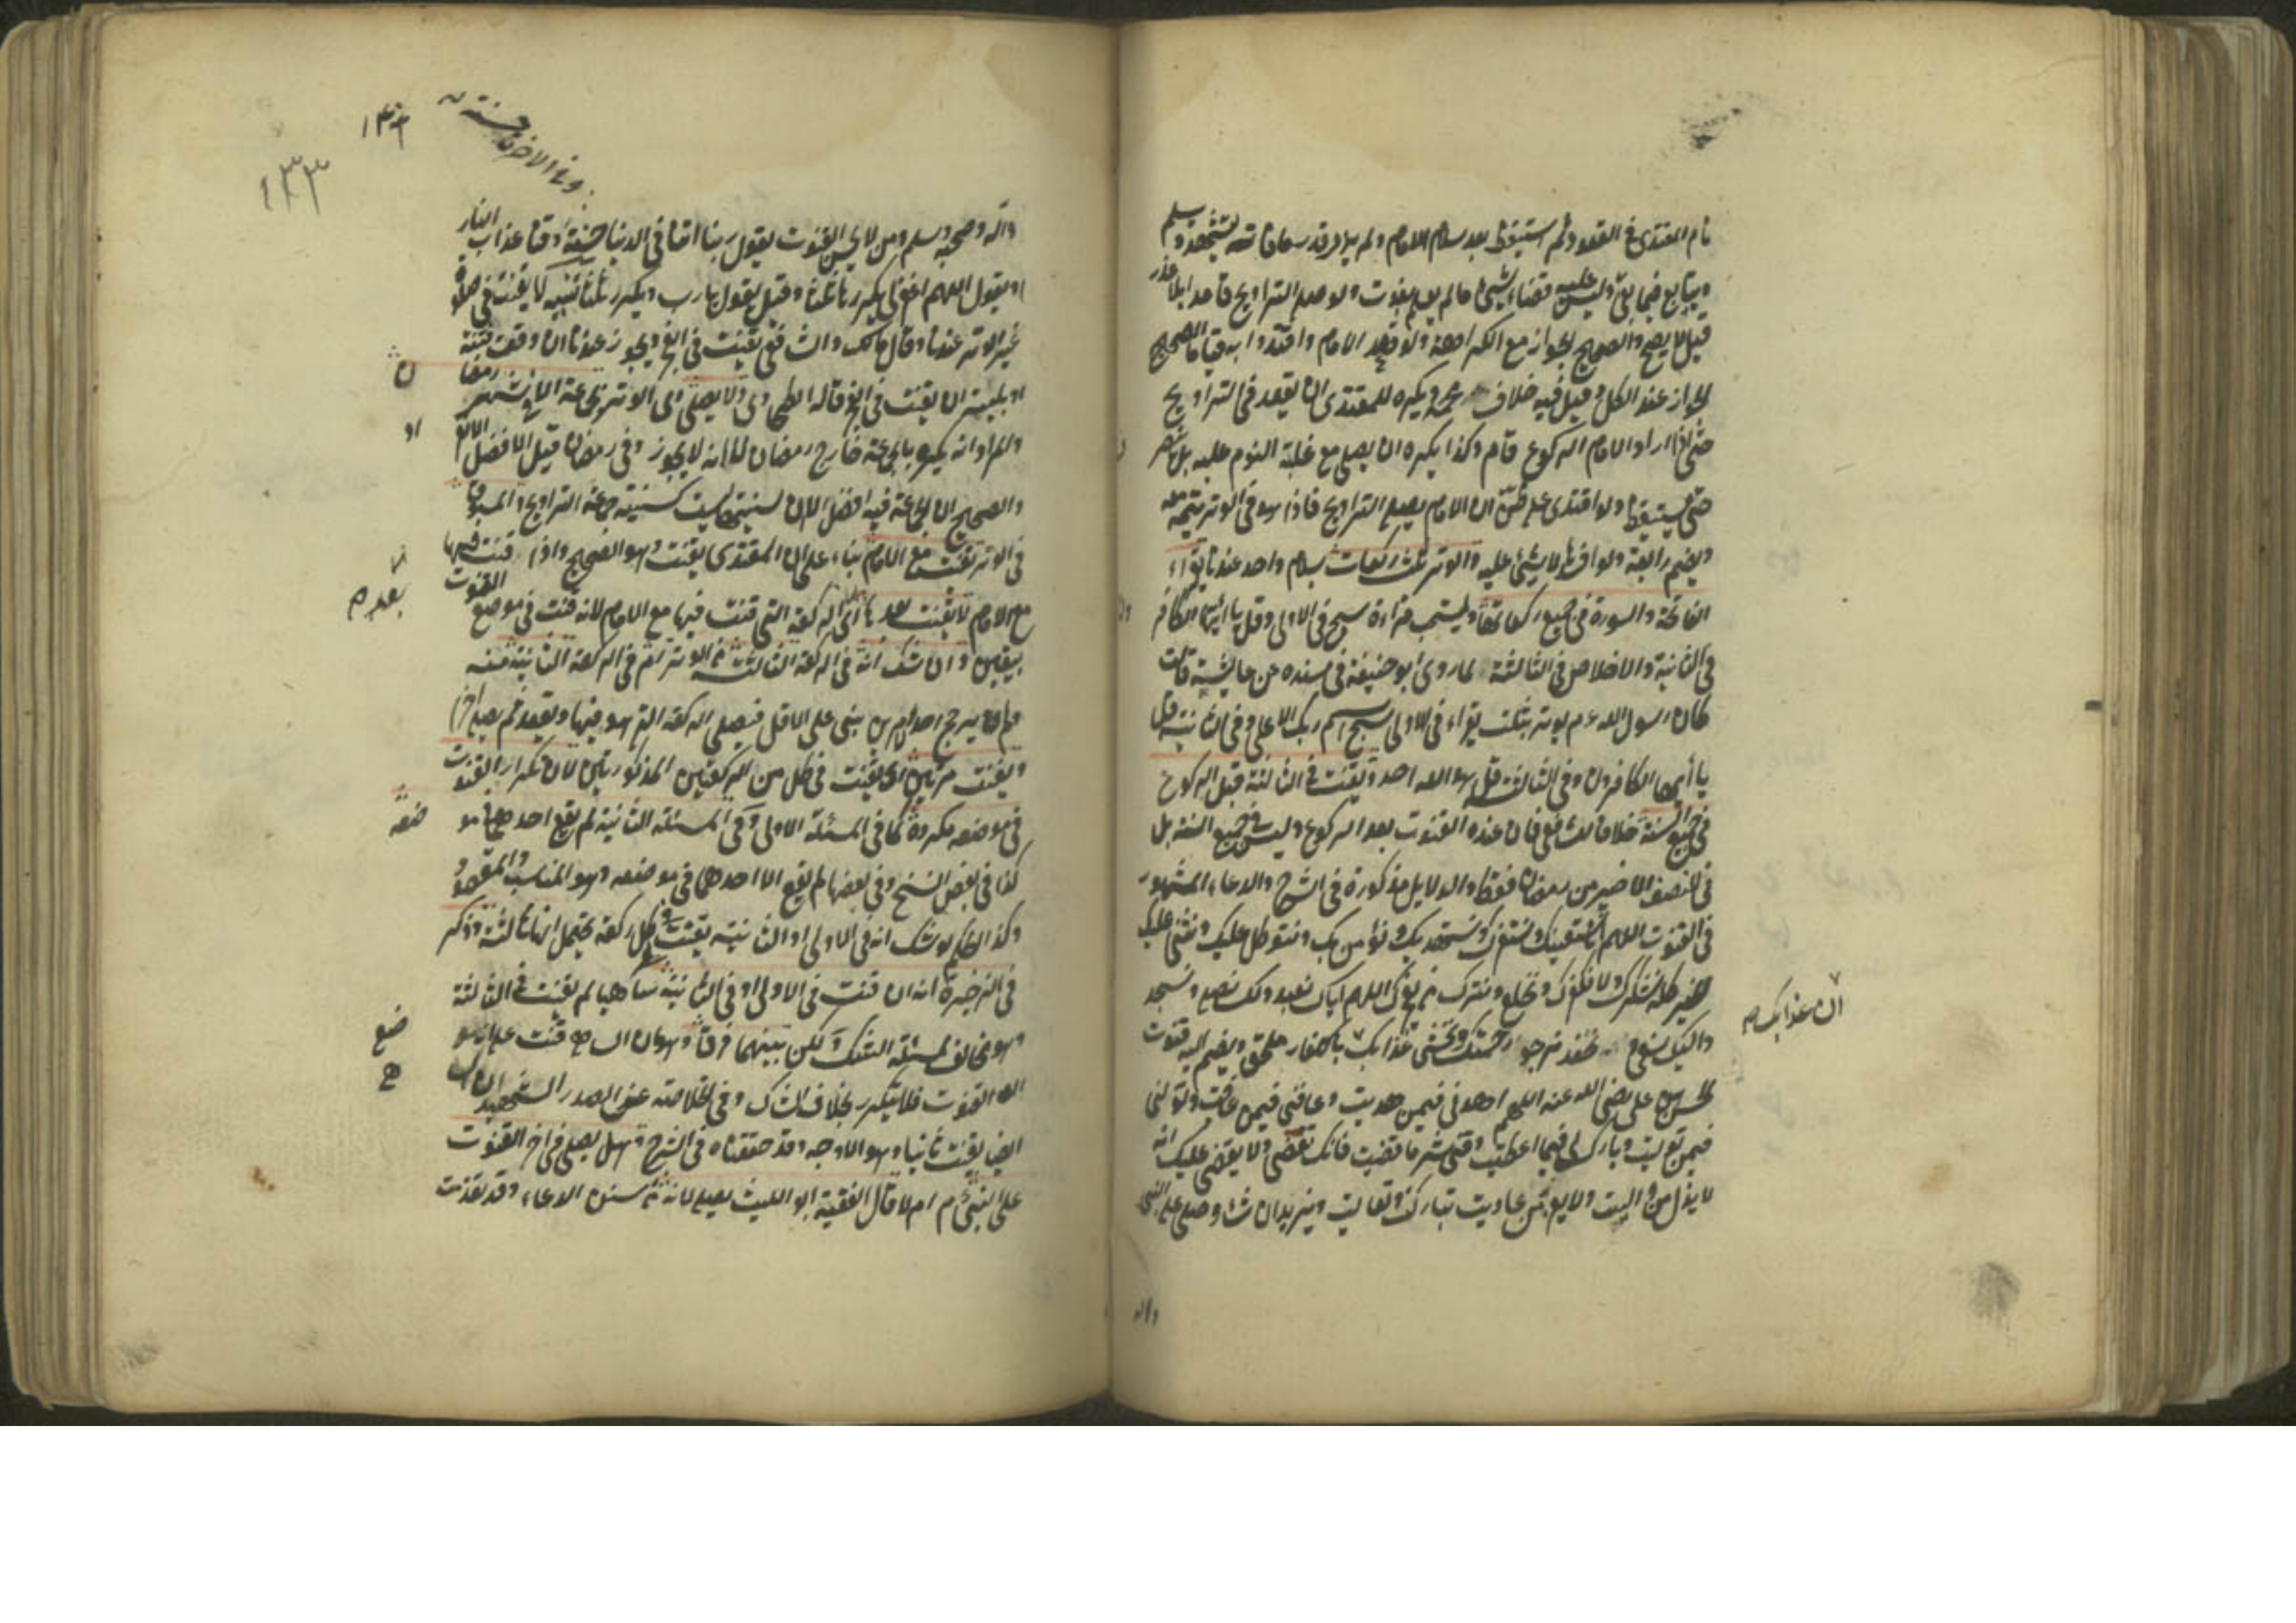 نام المقتدى في القعود ثم استيقظ بعد سلام الامام ولم يدر قدر ما فاته يتشهد ويسلم
ويتابع فيما بقى وليس عليه قضاء شيء ما لم يعلم بفوت ولو صلى التراويح قاعدا بلا عذر
قيل لا يصح والصحيح الجواز مع الكراهة ولو قعد الامام واقتدوا به قياما الصحيح
الجواز عند الكل وقيل فيه خلاف محمد ويكره للمقتدى ان يقعد في التراويح
حتى اذا اراد الامام الركوع قام وكذا يكره ان يصلى مع غلبة النوم عليه بل ينصرف
حتى يستيقظ ولو اقتدى على ظن ان الامام يصلى التراويح فاذا هو في الوتر يتمه معه
ويضم رابعة ولو افسد لا شيء عليه والوتر ثلث ركعات بسلام واحد عندنا يقراء
الفاتحة والسورة في جميع ركعاتها ويستحب قراءة سبح في الاولى وقل يا ايها الكافرون
في الثانية والاخلاص في الثالثة لما روى ابو حنيفة في مسنده عن عايشة قالت
كان رسول الله عم يوتر بثلث يقراء في الاولى سبح اسم ربك الاعلى وفي الثانية قل
يا أيها الكافرون وفي الثالثة قل هو الله احد ويقنت في الثالثة قبل الركوع
في جميع السنة خلافا للشافعي فان عنده القنوت بعد الركوع وليس في جميع السنة بل
في النصف الاخير من رمضان فقط والدلايل مذكورة في الشرح والدعاء المشهور
في القنوت اللهم انا نستعينك ونستغفرك ونستهديك ونؤمن بك ونتوكل عليك ونثنى عليك
الخير كله نشكرك ولا نكفرك ونخلع ونترك من يفجرك اللهم اياك نعبد ولك نصلى ونسجد
واليك نسعى ونحفد نرجو رحمتك ونخشى عذابك بالكفار ملحق ويضم اليه قنوت
ان عذابك صح
الحسن بن على رضى الله عنه اللهم اهدنى فيمن هديت وعافنى فيمن عافيت وتولنى
فيمن توليت وبارك لى فيما اعطيت وقنى شر ما قضيت فانك تقضى ولا يقضى عليك انه
لا يذل من واليت ولا يعز من عاديت تباركت وتعاليت ويزيد ان شاء وصلى على النبى
واله
١٣٣
وفي الاخرة حسنة
واله وصحبه وسلم ومن لا يحسن القنوت يقول ربنا اتنا في الدنيا حسنة وقنا عذاب النار
او يقول اللهم اغفر لى يكرر ثلثا وقيل يقول يا رب ويكرر ثلثا تنبيه لا يقنت في صلوة
غير الوتر عندنا وقال مالك والشافعي يقنت في الفجر ويجوز عندنا ان وقعت فتنة
او بلية ان يقنت في الفجر قاله الطحاوى ولا يصلى الوتر بجماعة الا في شهر رمضان
والمراد انه يكره بالجماعة خارج رمضان لا انه لا يجوز وفي رمضان قيل الافضل
والصحيح ان الجماعة فيه افضل الا ان سنيتها ليست كسنية جماعة التراويح والمسبوق
في الوتر يقنت مع الامام بناء على ان المقتدى يقنت وهو الصحيح واذا قنت
مع الامام لا يقنت بعدها اى الركعة التى قنت فيها مع الامام لانه قنت في موضع القنوت
بعد صح
بيقين وان شك انه في الركعة الثالثة من الوتر ام في الركعة الثانية منه
ولم يترجح احدهما بنى على الاقل فيصلى الركعة التى هو فيها ويقعد ثم يصلى اخرى
ويقنت مرتين اى يقنت في كل من الركعتين المذكورتين لان تكرار القنوت
في موضعه مكروه كما في المسئلة الاولى وفي المسئلة الثانية لم يقع احدهما في مو
ضعه
كذا في بعض النسخ وفي بعضها لم يقع الا احدهما في موضعه وهو المناسب للمقصود
وكذا الحكم لو شك انه في الاولى او الثانية يقنت في كل ركعة يحتمل انها ثالثة وذكر
في الذخيرة انه ان قنت في الاولى او في الثانية ساهيا لم يقنت في الثالثة
وهو مخالف لمسئلة الشك ولكن بينهما فرقا وهو ان الساهى قنت على انه مو
ضع
القنوت فلا يتكرر بخلاف الشاك وفي الخلاصة عن الصدر الشهيد ان
ايضا يقنت ثانيا وهو الاوجه وقد حققناه في الشرح وهل يصلى في اخر القنوت
على النبي عم ام لا قال الفقيه ابو الليث يصلى لانه من سنن الدعاء وقد تقدمت